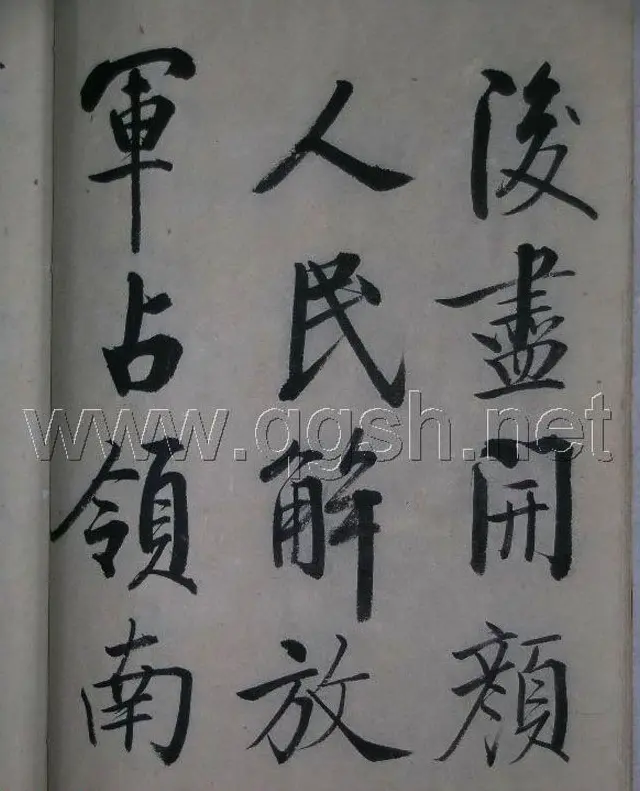 後盡開顔
人民解放
軍占領南
www.qgsh.net